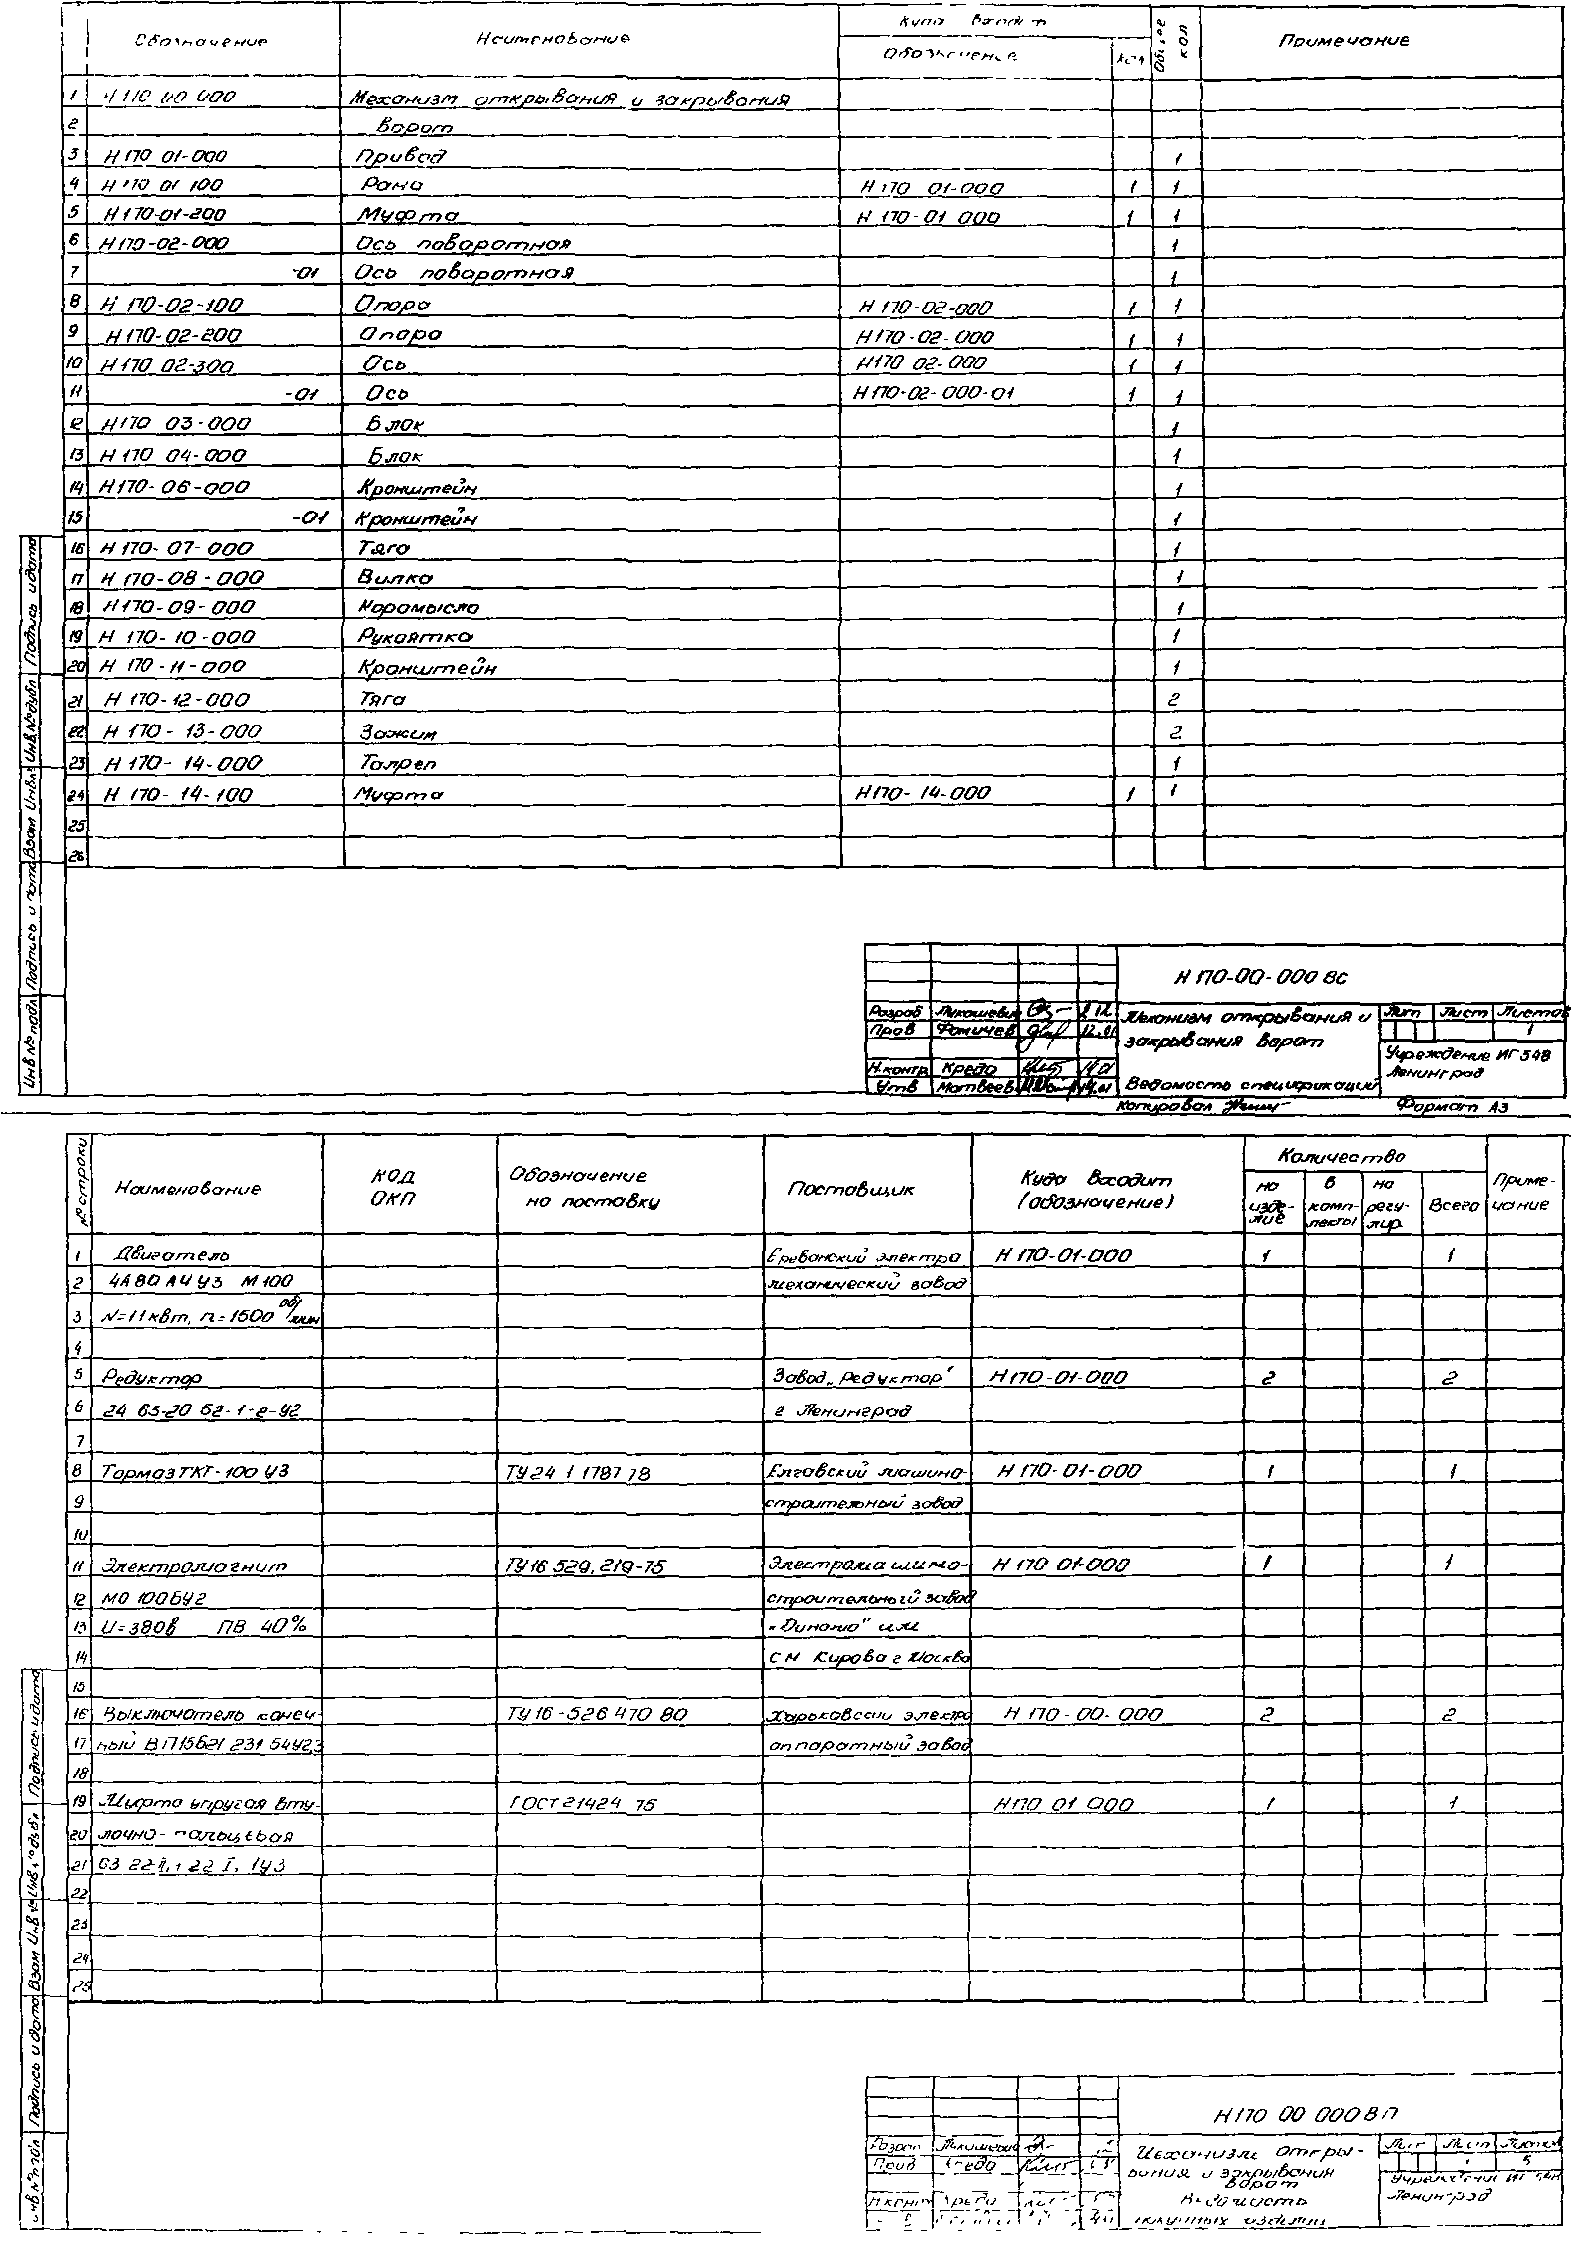 Обозначение Наименование Куда входит Общее кол Примечание
Обозначение кол
1 Н 170 00 000 Механизм открывания и закрывания
2 ворот
3 Н 170 01-000 Привод 1
4 Н 170 01 100 Рама Н 170 01-000 1 1
5 Н 170-01-200 Муфта Н 170-01 000 1 1
6 Н 170-02-000 Ось поворотная 1
7 -01 Ось поворотная 1
8 Н 170-02-100 Опора Н 170-02-000 1 1
9 Н 170-02-200 Опора Н 170-02-000 1 1
10 Н 170 02-300 Ось Н 170 02-000 1 1
11 -01 Ось Н 170-02-000-01 1 1
12 Н 170 03-000 Блок 1
13 Н 170 04-000 Блок 1
14 Н 170-06-000 Кронштейн 1
15 -01 Кронштейн 1
16 Н 170-07-000 Тяга 1
17 Н 170-08-000 Вилка 1
18 Н 170-09-000 Коромысло 1
19 Н 170-10-000 Рукоятка 1
20 Н 170-11-000 Кронштейн 1
21 Н 170-12-000 Тяга 2
22 Н 170-13-000 Зажим 2
23 Н 170-14-000 Талреп 1
24 Н 170-14-100 Муфта Н 170-14-000 1 1
25
26
Инв № подл Подпись и дата Взам Инв № Инв № дубл Подпись и дата
Н 170-00-000 ВС
Разраб Лукашевич Механизм открывания и закрывания ворот Лит Лист Листов
Пров Фомичев 12.81 1
Н.контр Кредо Учреждение ИГ 548 Ленинград
Утв Матвеев Ведомость спецификаций
Копировал Формат А3
№ строки Наименование КОД ОКП Обозначение на поставку Поставщик Куда входит (обозначение) Количество Примечание
на изделие в комплекты на регулир. Всего
1 Двигатель Ереванский электро Н 170-01-000 1 1
2 4А80А4У3 М100 механический завод
3 N=1 1 квт, n=1500 об/мин
4
5 Редуктор Завод „Редуктор" Н 170-01-000 2 2
6 2Ч 63-20 52-1-2-У2 г Ленинград
7
8 Тормоз ТКТ-100 У3 ТУ24 1 1787 78 Елгавский машино- Н 170-01-000 1 1
9 строительный завод
10
11 Электромагнит ТУ16 529.219-75 Электромашино- Н 170 01-000 1 1
12 МО 100БУ2 строительный завод
13 U=380в ПВ 40% „Динамо" им
14 С М Кирова г Москва
15
16 Выключатель конеч- ТУ16-526 470 80 Харьковский электро Н 170-00-000 2 2
17 ный ВП15Б21 231 54У2.3 аппаратный завод
18
19 Муфта упругая вту- ГОСТ 21424 75 Н 170 01 000 1 1
20 лочно-пальцевая
21 63 22 I. 1У3
22
23
24
25
Инв № подл Подпись и дата Взам Инв № Инв № дубл Подпись и дата
Н 170 00 000 ВП
Разраб Лукашевич Механизм откры- Лит Лист Листов
Пров Кредо вания и закрывания ворот
Н контр Кредо Ведомость Учреждение Ленинград
покупных изделий